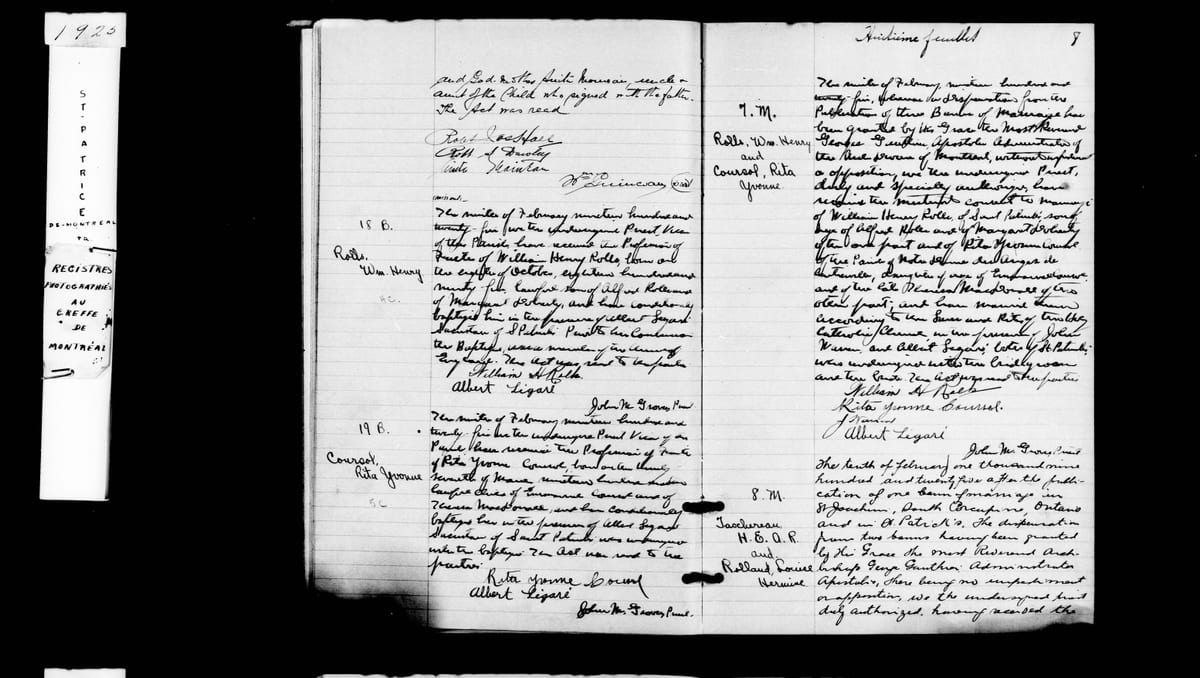 1925
ST-PATRICE
DE-MONTRÉAL
REGISTRES
PHOTOGRAPHIÉS
AU
GREFFE
DE
MONTRÉAL
and God mother Anita uncle &
aunt of the Child who signed with the father.
The Act was read
18 B.
Rolls,
Wm. Henry
The ninth of February nineteen hundred and
twenty-five we the undersigned Priest Vicar
of this Parish, have received the Profession of
Faith of William Henry Rolls, born on
the eighth of October, eighteen hundred and
ninety five lawful son of Alfred Rolls and
of Margaret Doherty, and have conditionally
baptized him in the presence of Albert Legaré
Sacristan of St Patrick's
the Baptism, was a member of the Church of
England. This Act was read to the parties
William H Rolls
Albert Legaré
John M. Graves Priest
19 B.
Coursol,
Rita Yvonne
The ninth of February nineteen hundred and
twenty-five we the undersigned Priest Vicar of this
Parish have received the Profession of Faith
of Rita Yvonne Coursol, born on the twenty
seventh of March nineteen hundred and
lawful child of Coursol and of
Theresa MacDonald, and have conditionally
baptized her in the presence of Albert Legaré
Sacristan of Saint Patrick's
the baptism This Act was read to the
parties
Rita Yvonne Coursol
Albert Legaré
John M. Graves Priest.
Huitième feuillet 8
7. M.
Rolls, Wm. Henry
and
Coursol, Rita
Yvonne
The ninth of February nineteen hundred and
twenty-five, whereas a dispensation from the
Publication of three Banns of Marriage has
been granted by His Grace the Most Reverend
George Gauthier Apostolic Administrator of
the Archdiocese of Montreal, without impediment
or opposition, we the undersigned Priest,
duly and specially authorized, have
received the mutual consent to marriage
of William Henry Rolls, of Saint Patrick's, son of
age of Alfred Rolls and of Margaret Doherty
of the one part and of Rita Yvonne Coursol
of the Parish of Notre Dame des Anges de
Cartierville, daughter of age of Coursol
and of the late Theresa MacDonald of the
other part; and have married them
according to the laws and Rites of the Holy
Catholic Church in the presence of John
and Albert Legaré, both of St. Patrick's,
were undersigned with the bridegroom
and the bride. This Act was read to the parties
William H Rolls
Rita Yvonne Coursol.
Albert Legaré
John M. Graves Priest
8. M.
Taschereau
H. E. A. R.
and
Rolland, Louise
Hermine
The tenth of February one thousand nine
hundred and twenty five after the publi-
cation of one bann of marriage in
St Joachim, South Porcupine, Ontario
and in St. Patrick's. The dispensation
from two banns having been granted
by His Grace the most Reverend Arch-
bishop George Gauthier Administrator
Apostolic, there being no impediment
or opposition, we the undersigned priest
duly authorized, having received the